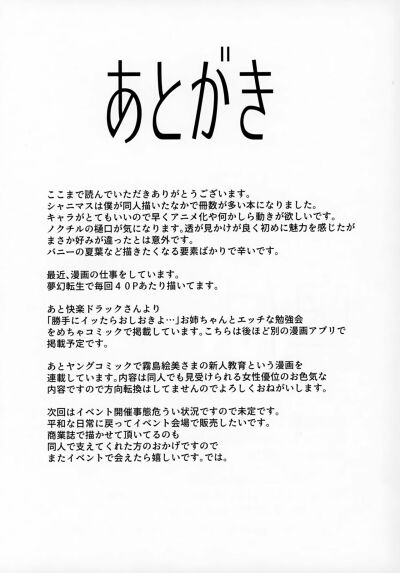 あとがき
ここまで読んでいただきありがとうございます。
シャニマスは僕が同人描いたなかで冊数が多い本になりました。
キャラがとてもいいので早くアニメ化や何かしら動きが欲しいです。
ノクチルの樋口が気になります。透が見かけが良く初めに魅力を感じたが
まさか好みが違ったとは意外です。
バニーの夏葉など描きたくなる要素ばかりで辛いです。
最近、漫画の仕事をしています。
夢幻転生で毎回４０Pあたり描いてます。
あと快楽ドラックさんより
「勝手にイッたらおしおきよ…」お姉ちゃんとエッチな勉強会
をめちゃコミックで掲載しています。こちらは後ほど別の漫画アプリで
掲載予定です。
あとヤングコミックで霧島絵美さまの新人教育という漫画を
連載しています。内容は同人でも見受けられる女性優位のお色気な
内容ですので方向転換はしてませんのでよろしくおねがいします。
次回はイベント開催事態危うい状況ですので未定です。
平和な日常に戻ってイベント会場で販売したいです。
商業誌で描かせて頂いてるのも
同人で支えてくれた方のおかげですので
またイベントで会えたら嬉しいです。では。